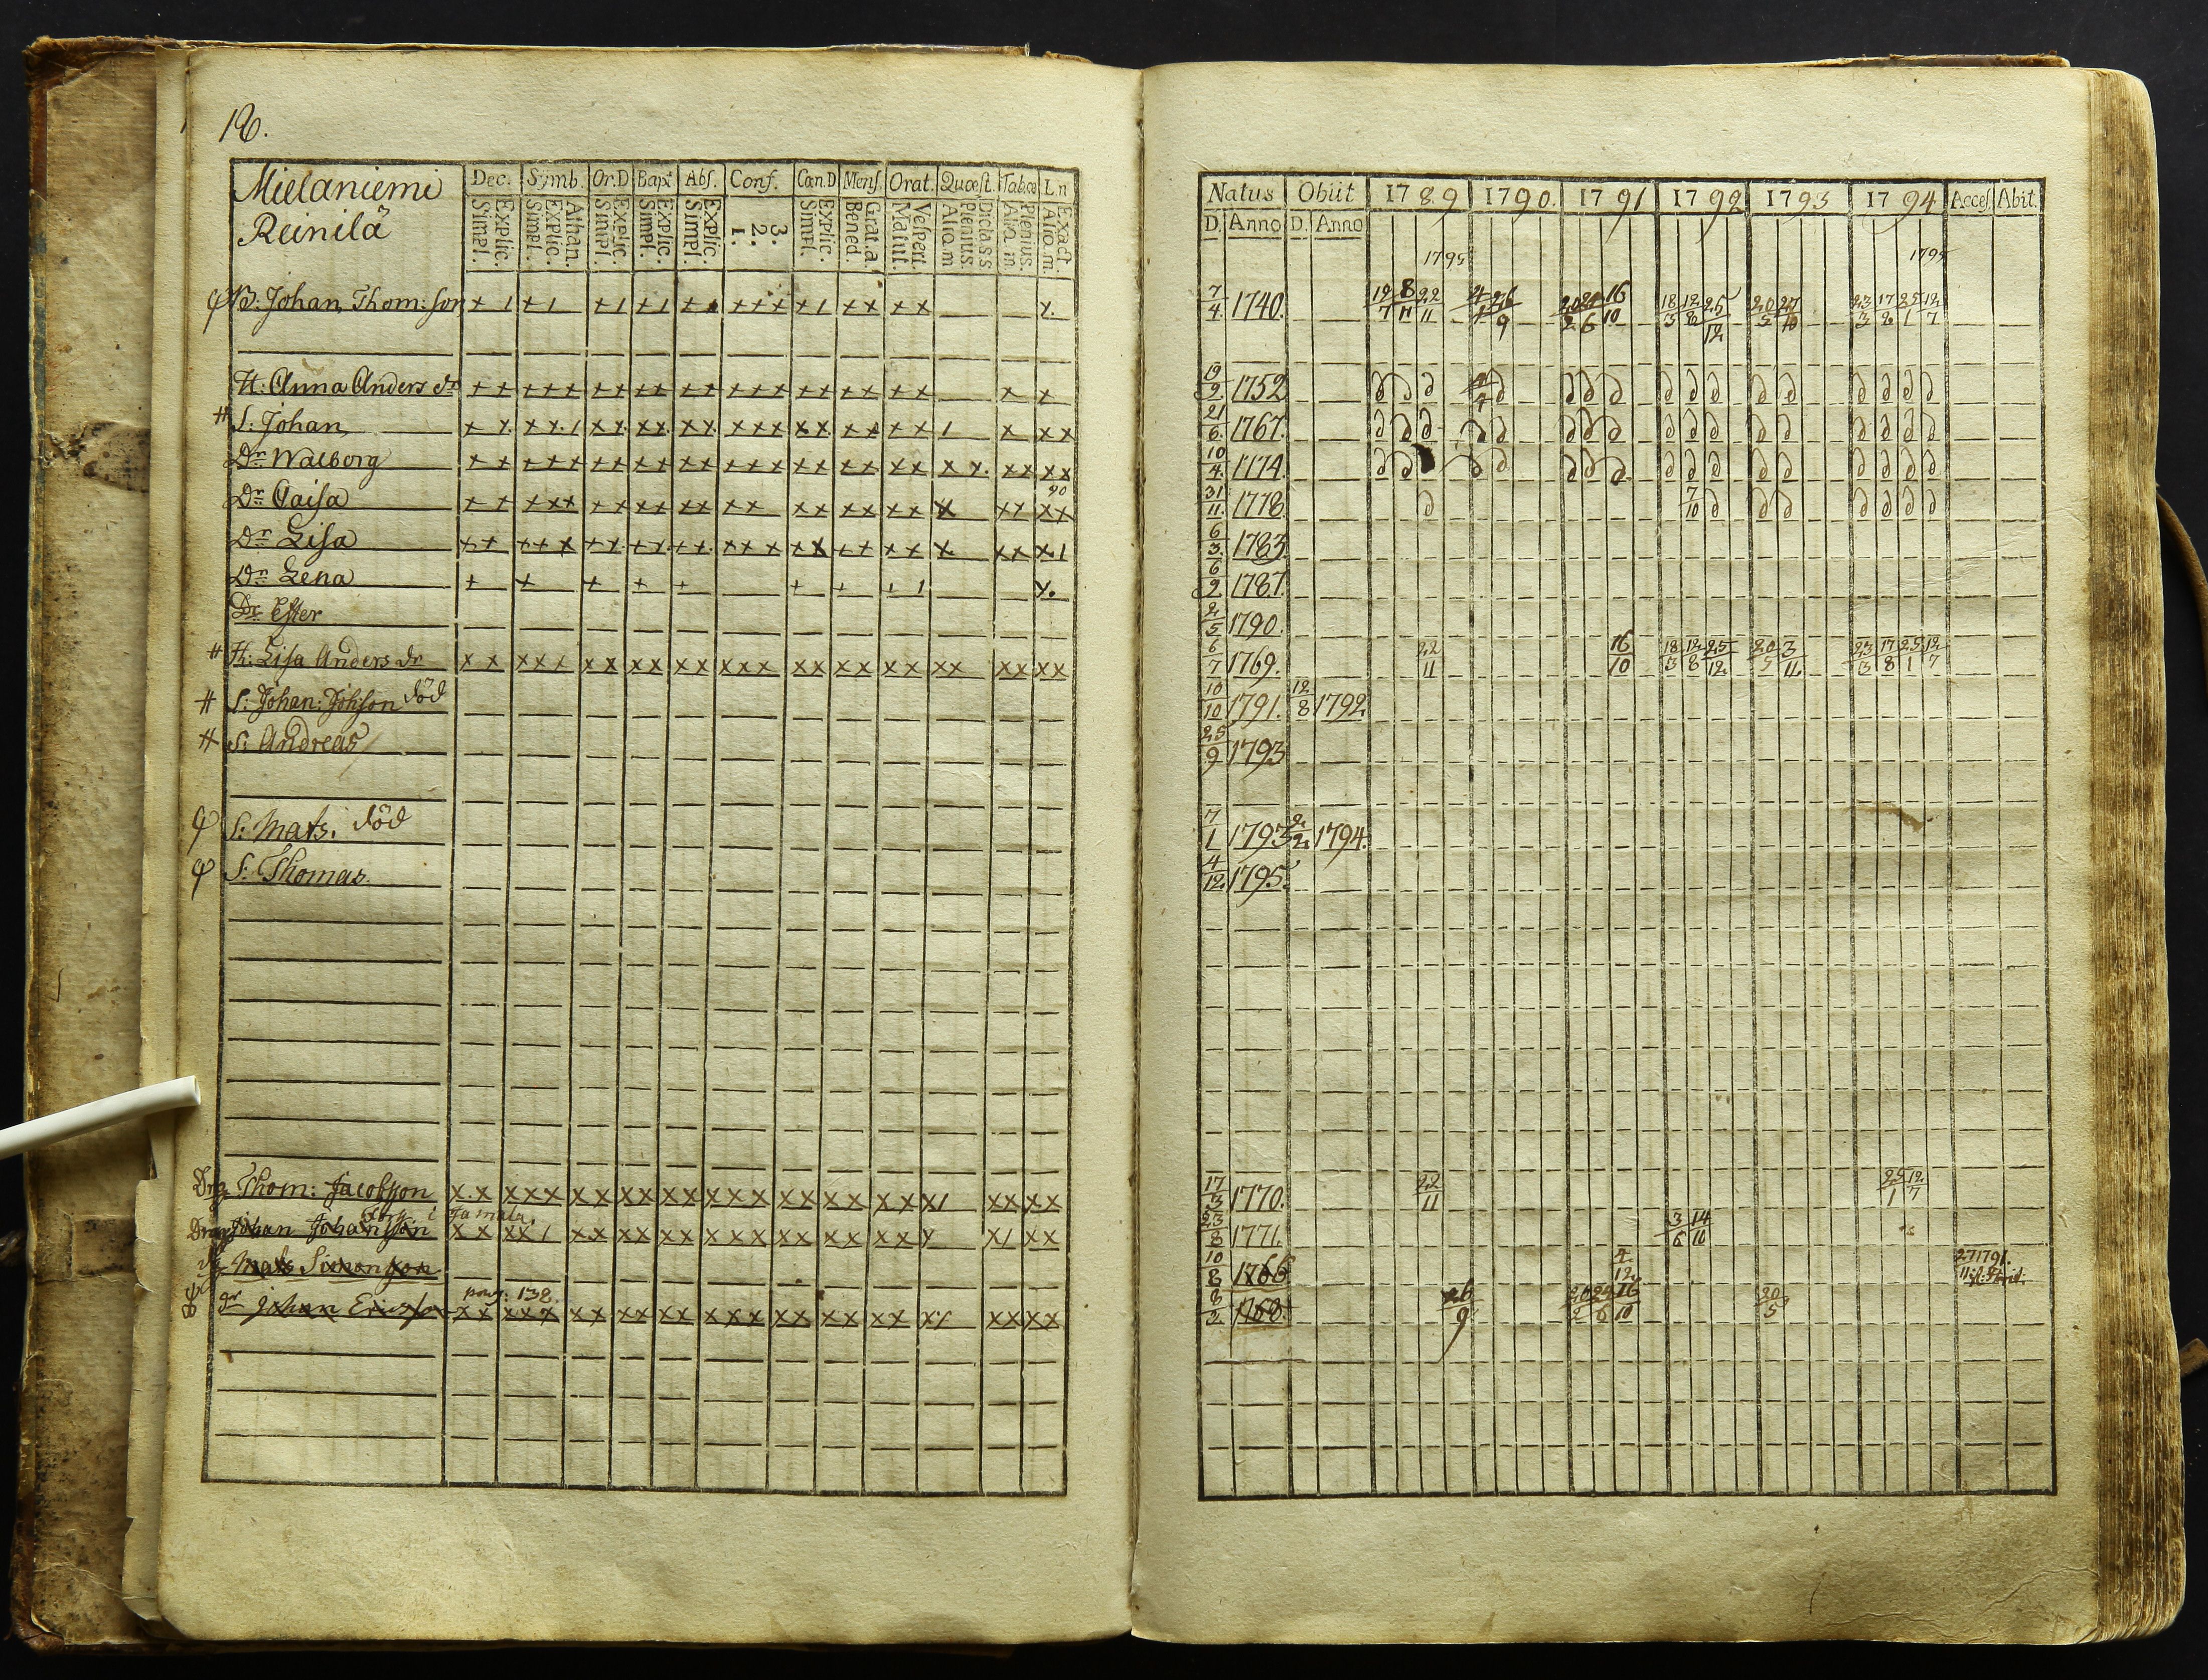 16.
Mielaniemi
Reinilä
Dec. Symb. Or.D Bapt Abs. Conf. Cœn.D Mens. Orat. Quœst. Tab.œ L n
Explic. Simpl. Athan. Explic. Simpl. Explic. Simpl. Explic. Simpl. Explic. Simpl. 3. 2. 1. Explic. Simpl. Grat. a. Bened. Vesperi. Matut. Dict. a SS Plenius. Aliq. m Plenius. Aliq. m Exact. Aliq. m.
B: Johan Thom:son
H: Anna Anders dr
# S: Johan
Dr Walborg
Dr Caisa
90
Dr Lisa
Dr Lena
Dr Ester
# H: Lisa Anders dr
# S: Johan: Johsson död
# S: Andreas
S: Mats. död
S: Thomas.
Drg Thom: Jacobsson
Drg Johan Johansson
Mats Simonsson
pag: 138.
dr Johan Ericsson
Natus Obiit 1789 1790. 1791 1792 1793 1794 Acces. Abit.
D. Anno D. Anno
1795 1795
7/4 1740. 12/7 8/11 22/11 4/4 26/9 20/2 24/6 16/10 18/3 12/8 25/12 20/5 27/10 23/3 17/8 25/1 12/7
19/9 1752 4/4
21/6. 1767.
10/4. 1774.
31/11. 1778. 7/10
6/3. 1783.
6/9. 1787.
2/5 1790.
6/7 1769. 22/11 16/10 18/3 12/8 25/12 20/5 3/11 23/3 17/8 25/1 12/7
10/10 1791. 12/8 1792
25/9 1793
7/1 1793 2/2 1794.
4/12. 1795.
17/3 1770. 22/11 25/1 12/7
23/8 1771. 3/6 14/10
10/8 1766 4/12 27/11 1791.
8/2 1768. 26/9 20/2 24/6 16/10 20/5